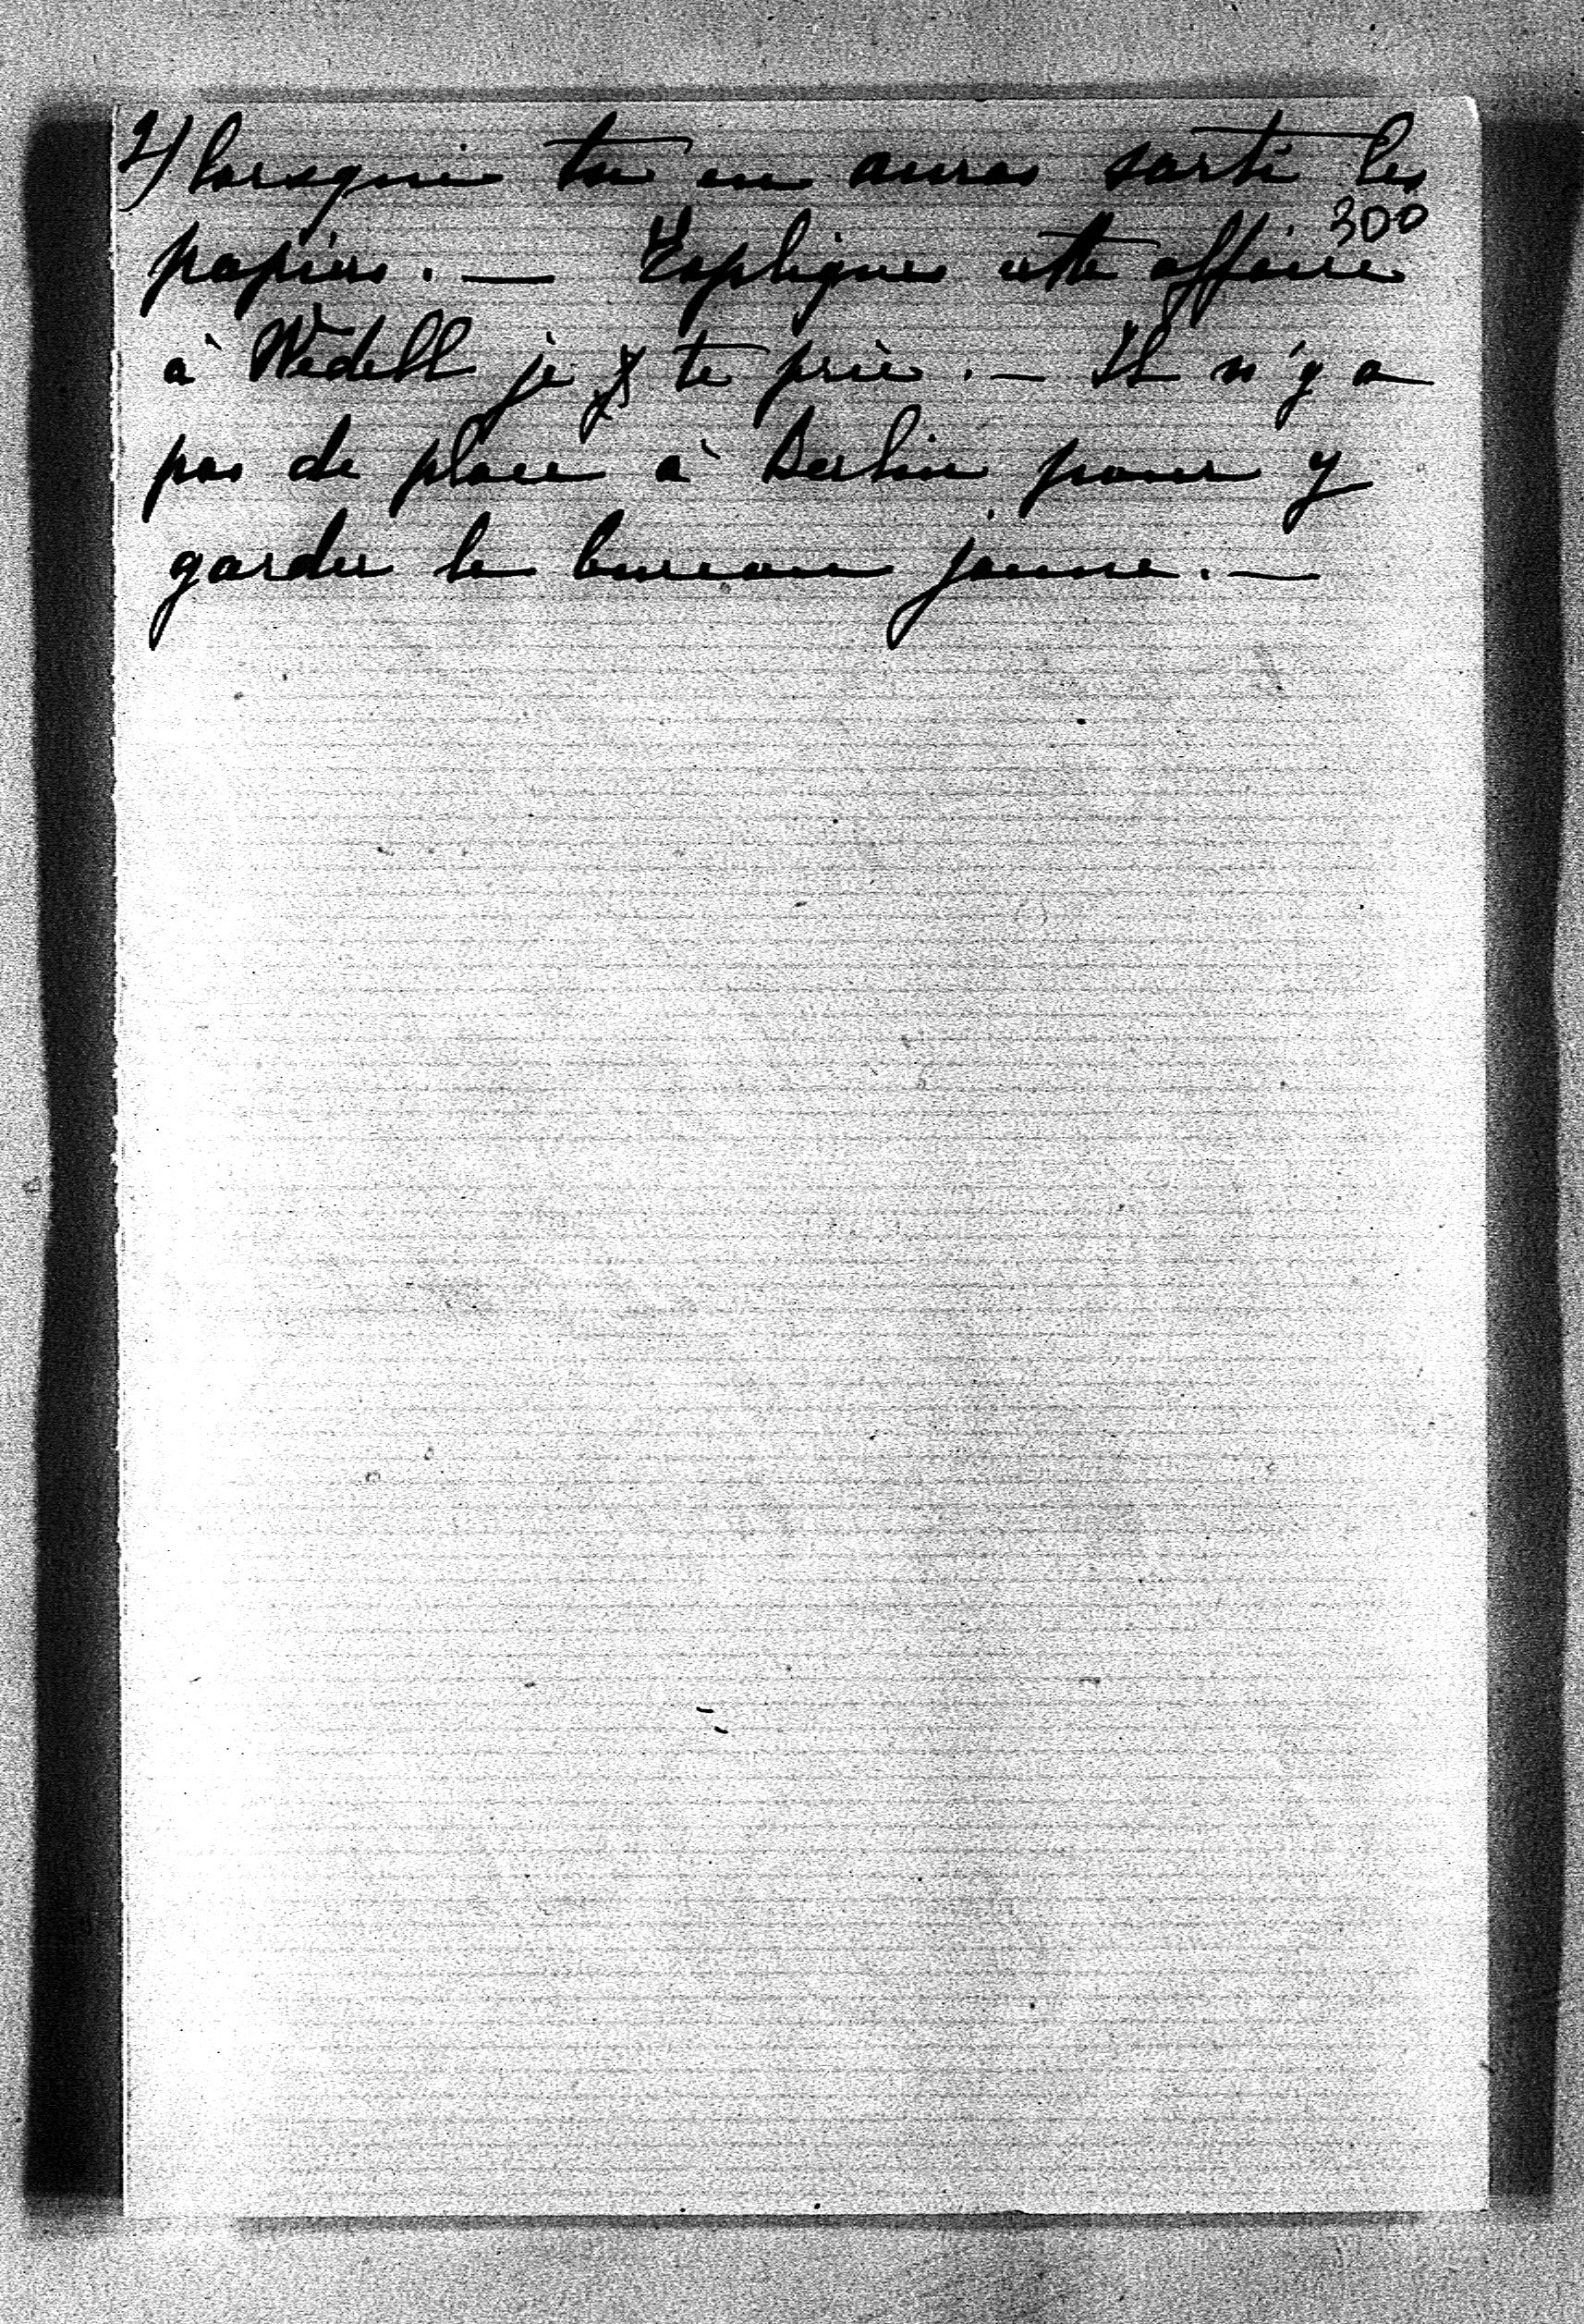 2) lorsque tu en auras sorti les
300
papiers. — Expliques cette affaire
à Wedell je te prie. — Il n'y a
pas de place à Berlin pour y
garder le bureau jaune. —